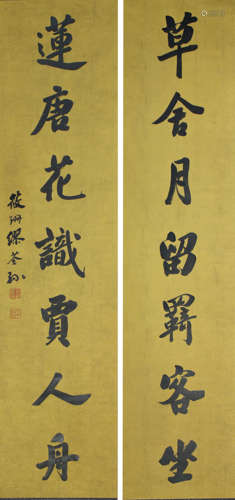 草舍月留羇客坐
蓮唐花識賈人舟
筱珊繆荃孫